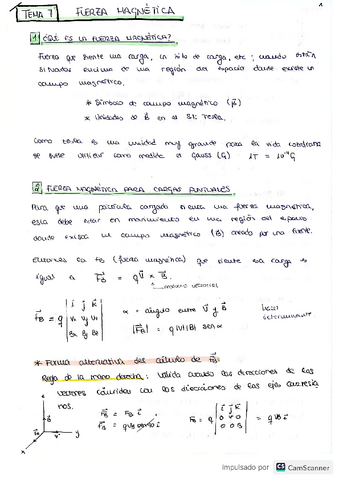 TEMA 7 FUERZA MAGNÉTICA
1 ¿QUÉ ES LA FUERZA MAGNÉTICA?
Fuerza que siente una carga, un hilo de carga, etc; cuando están
situados encima de una región del espacio donde existe un
campo magnético.
* Símbolo de campo magnético (B⃗)
* Unidades de B⃗ en el SI: Tesla.
Como tesla es una unidad muy grande para la vida cotidiana
se suele utilizar como medida el Gauss (G) 1T = 10⁻⁴G
2 FUERZA MAGNÉTICA PARA CARGAS PUNTUALES
Para que una partícula cargada sienta una fuerza magnética,
esta debe estar en movimiento en una región del espacio
donde exista un campo magnético (B) creado por una fuente.
Entonces la FB (fuerza magnética) que siente esa carga es
igual a F⃗B = q v⃗ x B⃗.
producto vectorial
F⃗B = q | i j k | Vx Vy Vz | Bx By Bz |
α = ángulo entre V⃗ y B⃗
|F⃗B| = q|V||B| sen α
hacer
determinante
* Forma alternativa del cálculo de F⃗B:
Regla de la mano derecha: válida cuando las direcciones de los
vectores coinciden con las direcciones de los ejes cartesia
nos.
F⃗B = FB i⃗
FB = q | i j k | 0 V 0 | 0 0 B | = q V B i⃗
x y z
Impulsado por CS CamScanner